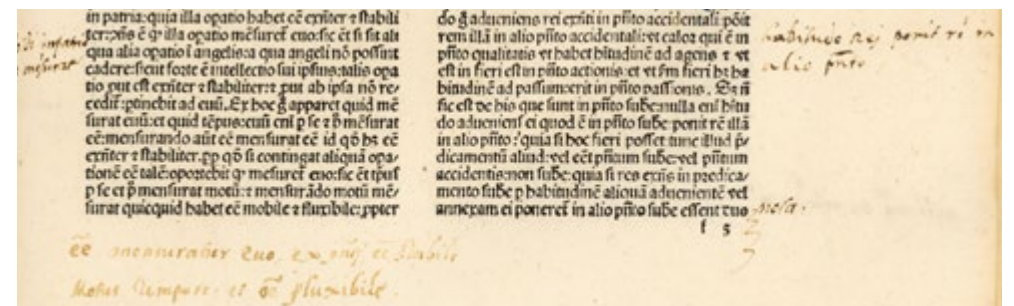 in patria: quia illa opatio habet eē exn̄ter ⁊ stabili
ter: ꝯn̄s ē ꝙ illa opatio mēsuret̄ euo: sic et̄ si sit ali
qua alia opatio ī angelis: a qua angeli nō possint
cadere: sicut forte ē intellectio sui ipsius: talis opa
tio put est exn̄ter ⁊ stabiliter: ⁊ put ab ipsa nō re⸗
cedit̄: ptinebit ad euū. Ex hoc g̊ apparet quid mē
surat euū: et quid tēpus: euū eni p se ⁊ p̄ mēsurat
eē: mensurando aūt eē mensurat eē id qd̄ hʒ eē
exn̄ter ⁊ stabiliter. pp qd̄ si contingat aliquā opa⸗
tionē eē talē: oportebit ꝙ mēsuret̄ euo: sic et̄ tp̄us
p se et p̄ mensurat motū: ⁊ mensurādo motū mē⸗
surat quicquid habet eē mobile ⁊ fluxibile: ppter
do g̊ adueniens rei exn̄ti in p̄n̄to accidentali pōit
rem illā in alio p̄n̄to accidentali: vt calor qui ē in
p̄n̄to qualitatis vt habet hītudinē ad agens ⁊ vt
est in fieri est in p̄n̄to actionis: et vt s̄m fieri hʒ ha
bitudinē ad passum: erit in p̄n̄to passionis. Sʒ n̄
sic est de his que sunt in p̄n̄to sub̄e: nulla eni hītu
do adueniens ei quod ē in p̄n̄to sub̄e: ponit rē illā
in alio p̄n̄to: quia si hoc fieri posset: tunc illud p̄⸗
dicamentū aliud: vel eēt p̄n̄tum sub̄e: vel p̄n̄tum
accidentis: non sub̄e: quia si res exn̄s in predica⸗
mento sub̄e p habitudinē aliquā aduenientē vel
annexam ei poneret̄ in alio p̄n̄to sub̄e essent duo
f 3
habitudo rei ponit rē in
alio p̄n̄to
nota.
eē mensuratur euo
Motus tempore et fluxibile.